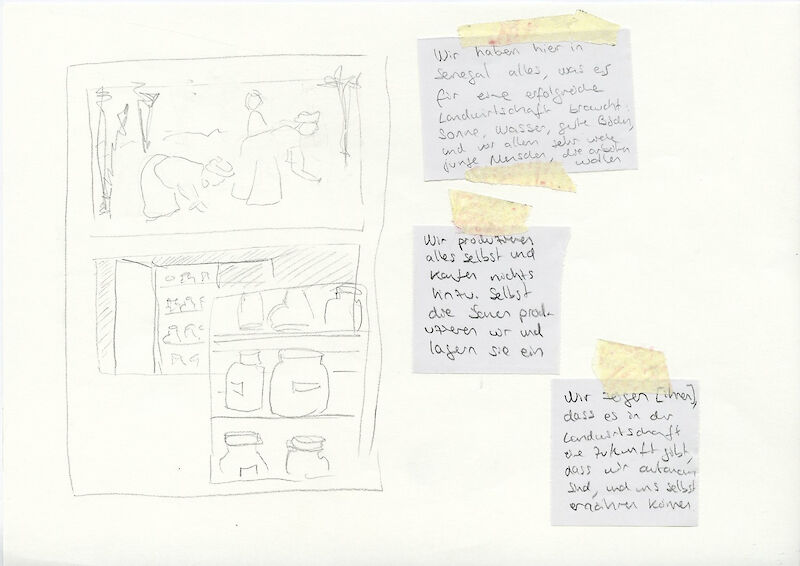 Wir haben hier in
Senegal alles, was es
für eine erfolgreiche
Landwirtschaft braucht:
Sonne, Wasser, gute Böden,
und vor allem sehr viele
junge Menschen, die arbeiten
wollen
Wir produzieren
alles selbst und
kaufen nichts
hinzu. Selbst
die Samen produ-
uzieren wir und
lagern sie ein
Wir zeigen [ihnen],
dass es in der
Landwirtschaft
eine Zukunft gibt,
dass wir autonom
sind, und uns selbst
ernähren können